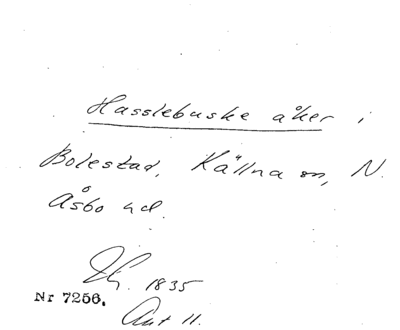 Hasslebuske åker i
Bolestad, Källna sn, N.
Åsbo hd.
1835
Nr 7256.
Akt 11.